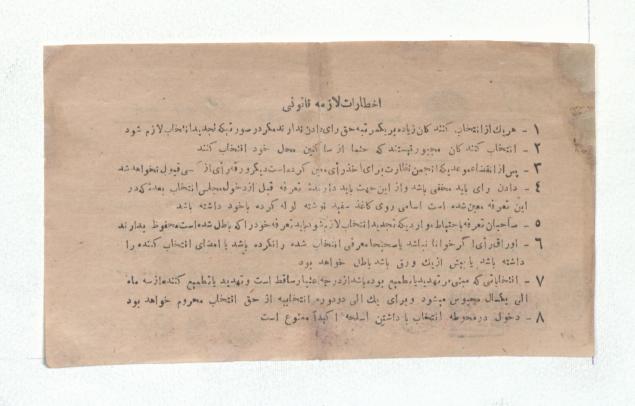 اخطارات لازمه قانونی
۱ - هریك از انتخاب کنندگان زیاده بر یکمرتبه حق رای دادن ندارند مگر در صورتیکه تجدید انتخاب لازم شود
۲ - انتخاب کنندگان مجبور نیستند که حتما از ساکنین محل خود انتخاب کنند
۳ - پس از انقضاء موعدیکه انجمن نظارت برای اخذ رأی معین کرده است دیگر ورقه رأی از کسی قبول نخواهد شد
۴ - دادن رای باید مخفی باشد و از این جهت باید دارندهٔ تعرفه قبل از دخول مجلس انتخاب بعدهٔ که در
این تعرفه معین شده است اسامی روی کاغذ سفید نوشته لوله کرده با خود داشته باشد
۵ - صاحبان تعرفه باحتیاط مواردیکه تجدید انتخاب لازم شود باید تعرفه خود را که باطل شده است محفوظ بدارند
۶ - اوراق رأی اگر خوانا نباشد یا صحیحا معرفی انتخاب شده را نکرده باشد یا امضای انتخاب کننده را
داشته باشد یا بیش از یك ورق باشد باطل خواهد بود
۷ - انتخاباتی که مبنی بر تهدید یا تطمیع بوده باشد از درجه اعتبار ساقط است و تهدید یا تطمیع کننده از سه ماه
الی یکسال محبوس میشود و برای یك الی دو دوره انتخابیه از حق انتخاب محروم خواهد بود
۸ - دخول در محوطه انتخاب با داشتن اسلحه اکیداً ممنوع است